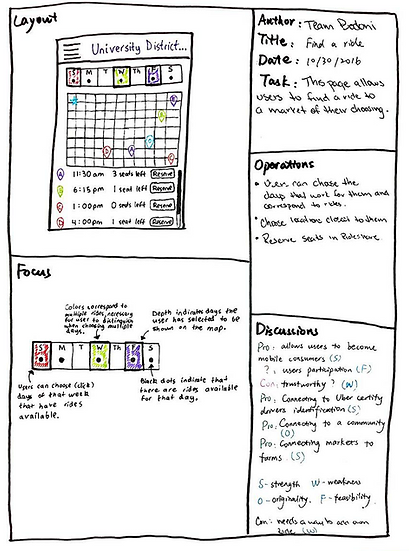 Layout
University District...
S M T W Th F S
A 11:30 am 3 seats left Reserve
B 6:15 pm 1 seat left Reserve
C 1:00 pm 0 seats left Reserve
D 4:00 pm 1 seat left Reserve
Focus
Colors correspond to
multiple rides, necessary
for user to distinguish
when choosing multiple
days.
Depth indicates days the
user has selected to be
shown on the map.
S M T W Th F S
Users can choose (click)
days of that week
that have rides
available.
Black dots indicate that
there are rides available
for that day.
Author: Team Bodoni
Title: Find a ride
Date: 10/30/2016
Task: This page allows
users to find a ride to
a market of their choosing.
Operations
• Users can chose the
days that work for them and
correspond to rides.
• Chose locations closest to them
• Reserve seats in Rideshare
Discussions
Pro: allows users to become
mobile consumers (S)
?: users participation (F)
Con: trustworthy? (W)
Pro: Connecting to Uber certify
drivers identification (S)
Pro: Connecting to a community
(O)
Pro: Connecting markets to
farms (S)
S - strength W - weakness
O - originality F - feasibility
Con: needs a way to an own
(W)